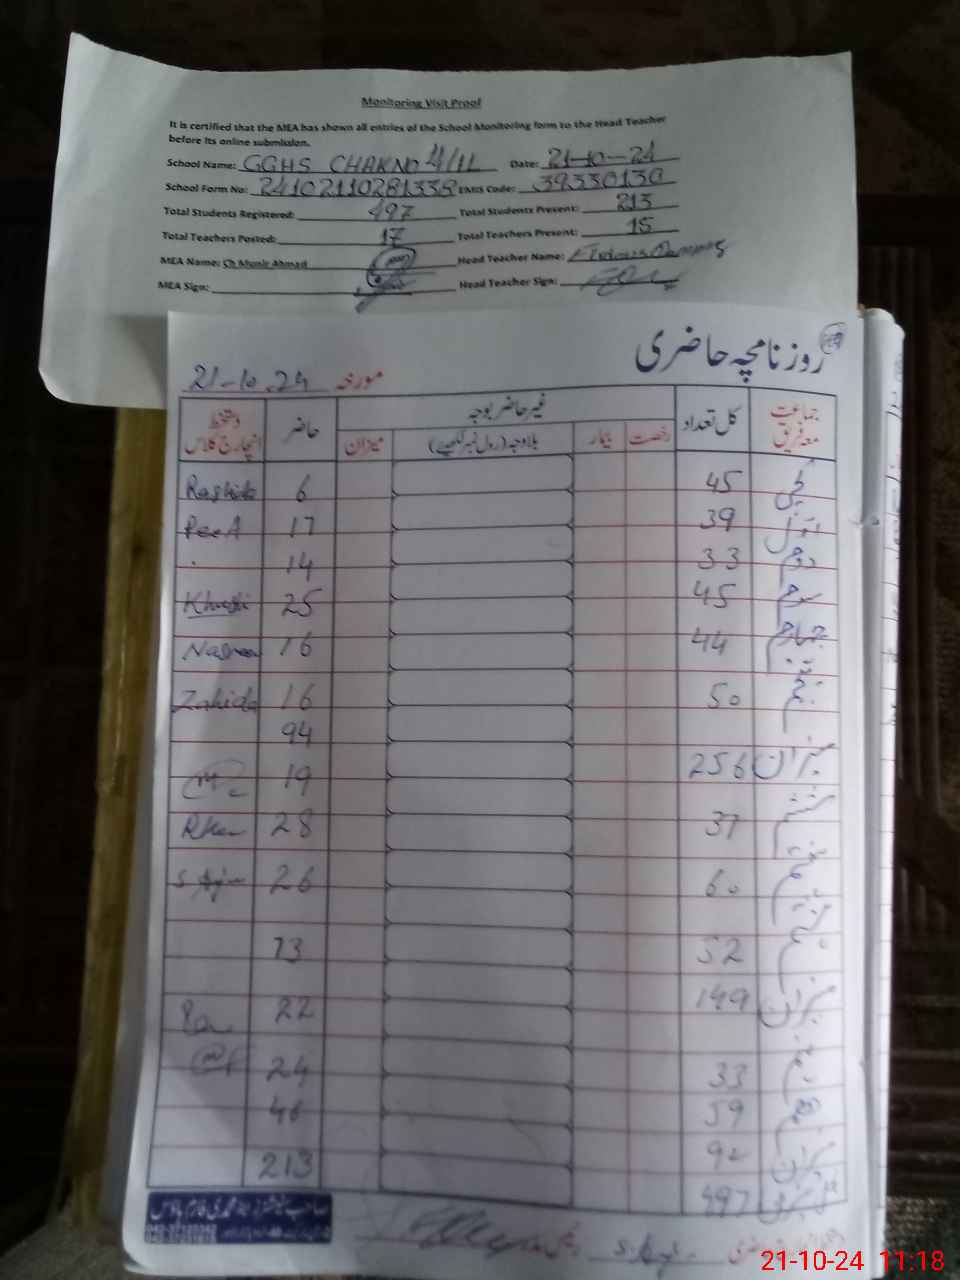 Monitoring Visit Proof
It is certified that the MEA has shown all entries of the School Monitoring form to the Head Teacher
before its online submission.
School Name: GGHS CHAKNO 4/1L Date: 21-10-24
School Form No: 24102110281338 EMIS Code: 39330130
Total Students Registered: 497 Total Students Present: 213
Total Teachers Posted: 17 Total Teachers Present: 15
MEA Name: Ch Munir Ahmad Head Teacher Name:
MEA Sign: Head Teacher Sign:
روزنامچہ حاضری
مورخہ 21-10-24
جماعت معہ فریق کل تعداد غیر حاضر بوجہ حاضر دستخط انچارج کلاس
رخصت بیمار بلاوجہ (رول نمبر لکھیے) میزان
45 6 Rashida
اول 39 17
دوم 33 14
سوم 45 25
چہارم 44 16
پنجم 50 16 Zahida
94
میزان 256 19
ششم 37 28
ہفتم 60 26
ہشتم 52 73
میزان 149 22
نہم 33 24
دہم 59 46
میزان 92 213
497
21-10-24 11:18